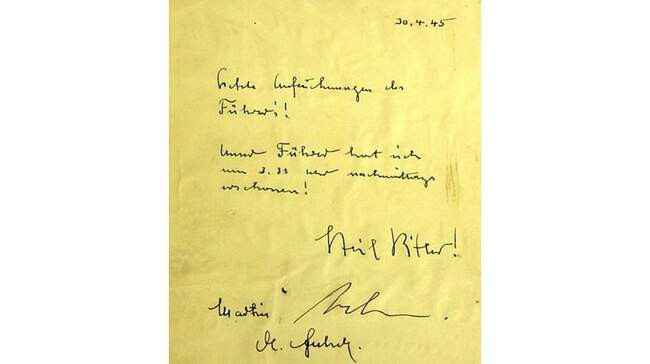 30.4.45
Letzte Aufzeichnungen des
Führers!
Unser Führer hat sich
um 3.33 Uhr nachmittags
erschossen!
Heil Hitler!
Martin